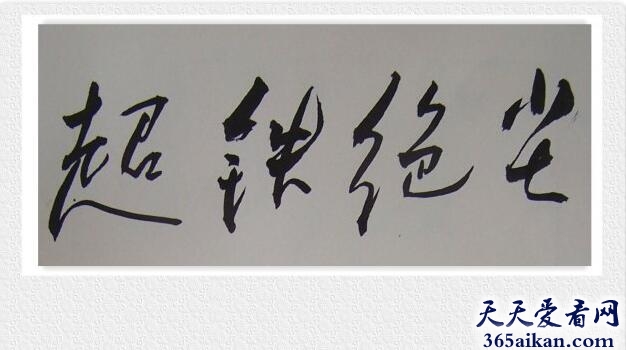 超轶绝尘
天天爱看网
365aikan.com